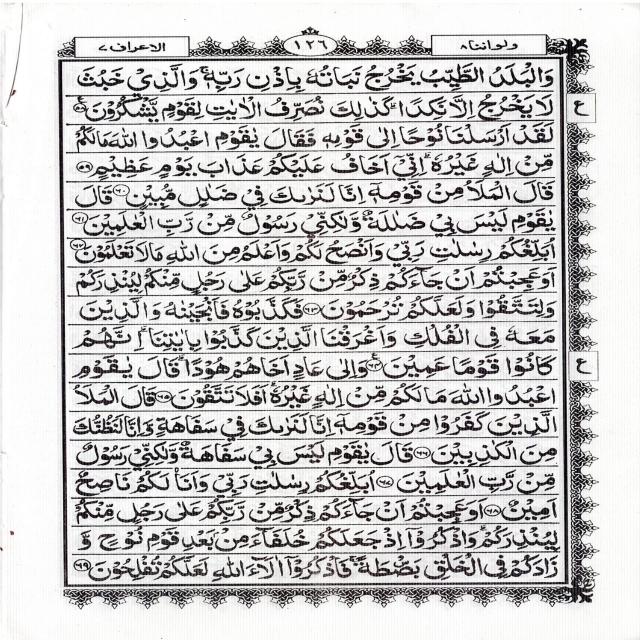 ولو اننا ۸ ١٢٦ الاعراف ۷
وَالْبَلَدُ الطَّيِّبُ يَخْرُجُ نَبَاتُهٗ بِاِذْنِ رَبِّهٖ ۚ وَالَّذِيْ خَبُثَ
لَا يَخْرُجُ اِلَّا نَكِدًا ؕ كَذٰلِكَ نُصَرِّفُ الْاٰيٰتِ لِقَوْمٍ يَّشْكُرُوْنَ ۵۸ ع
لَقَدْ اَرْسَلْنَا نُوْحًا اِلٰى قَوْمِهٖ فَقَالَ يٰقَوْمِ اعْبُدُوا اللّٰهَ مَا لَكُمْ
مِّنْ اِلٰهٍ غَيْرُهٗ ؕ اِنِّيْٓ اَخَافُ عَلَيْكُمْ عَذَابَ يَوْمٍ عَظِيْمٍ ۵۹
قَالَ الْمَلَاُ مِنْ قَوْمِهٖٓ اِنَّا لَنَرٰىكَ فِيْ ضَلٰلٍ مُّبِيْنٍ ۶۰ قَالَ
يٰقَوْمِ لَيْسَ بِيْ ضَلٰلَةٌ وَّلٰكِنِّيْ رَسُوْلٌ مِّنْ رَّبِّ الْعٰلَمِيْنَ ۶۱
اُبَلِّغُكُمْ رِسٰلٰتِ رَبِّيْ وَاَنْصَحُ لَكُمْ وَاَعْلَمُ مِنَ اللّٰهِ مَا لَا تَعْلَمُوْنَ ۶۲
اَوَعَجِبْتُمْ اَنْ جَآءَكُمْ ذِكْرٌ مِّنْ رَّبِّكُمْ عَلٰى رَجُلٍ مِّنْكُمْ لِيُنْذِرَكُمْ
وَلِتَتَّقُوْا وَلَعَلَّكُمْ تُرْحَمُوْنَ ۶۳ فَكَذَّبُوْهُ فَاَنْجَيْنٰهُ وَالَّذِيْنَ
مَعَهٗ فِي الْفُلْكِ وَاَغْرَقْنَا الَّذِيْنَ كَذَّبُوْا بِاٰيٰتِنَا ؕ اِنَّهُمْ
كَانُوْا قَوْمًا عَمِيْنَ ۶۴ وَاِلٰى عَادٍ اَخَاهُمْ هُوْدًا ؕ قَالَ يٰقَوْمِ ع
اعْبُدُوا اللّٰهَ مَا لَكُمْ مِّنْ اِلٰهٍ غَيْرُهٗ ؕ اَفَلَا تَتَّقُوْنَ ۶۵ قَالَ الْمَلَاُ
الَّذِيْنَ كَفَرُوْا مِنْ قَوْمِهٖٓ اِنَّا لَنَرٰىكَ فِيْ سَفَاهَةٍ وَّاِنَّا لَنَظُنُّكَ
مِنَ الْكٰذِبِيْنَ ۶۶ قَالَ يٰقَوْمِ لَيْسَ بِيْ سَفَاهَةٌ وَّلٰكِنِّيْ رَسُوْلٌ
مِّنْ رَّبِّ الْعٰلَمِيْنَ ۶۷ اُبَلِّغُكُمْ رِسٰلٰتِ رَبِّيْ وَاَنَا لَكُمْ نَاصِحٌ
اَمِيْنٌ ۶۸ اَوَعَجِبْتُمْ اَنْ جَآءَكُمْ ذِكْرٌ مِّنْ رَّبِّكُمْ عَلٰى رَجُلٍ مِّنْكُمْ
لِيُنْذِرَكُمْ ؕ وَاذْكُرُوْٓا اِذْ جَعَلَكُمْ خُلَفَآءَ مِنْۢ بَعْدِ قَوْمِ نُوْحٍ وَّ
زَادَكُمْ فِي الْخَلْقِ بَصْۜطَةً ۚ فَاذْكُرُوْٓا اٰلَآءَ اللّٰهِ لَعَلَّكُمْ تُفْلِحُوْنَ ۶۹